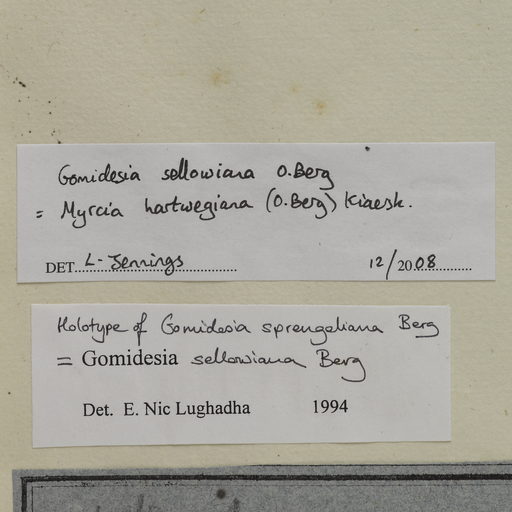 Gomidesia sellowiana O.Berg
= Myrcia hartwegiana (O.Berg) Kiaersk.
DET. L. Jennings 12/2008
Holotype of Gomidesia sprengeliana Berg
= Gomidesia sellowiana Berg
Det. E. Nic Lughadha 1994